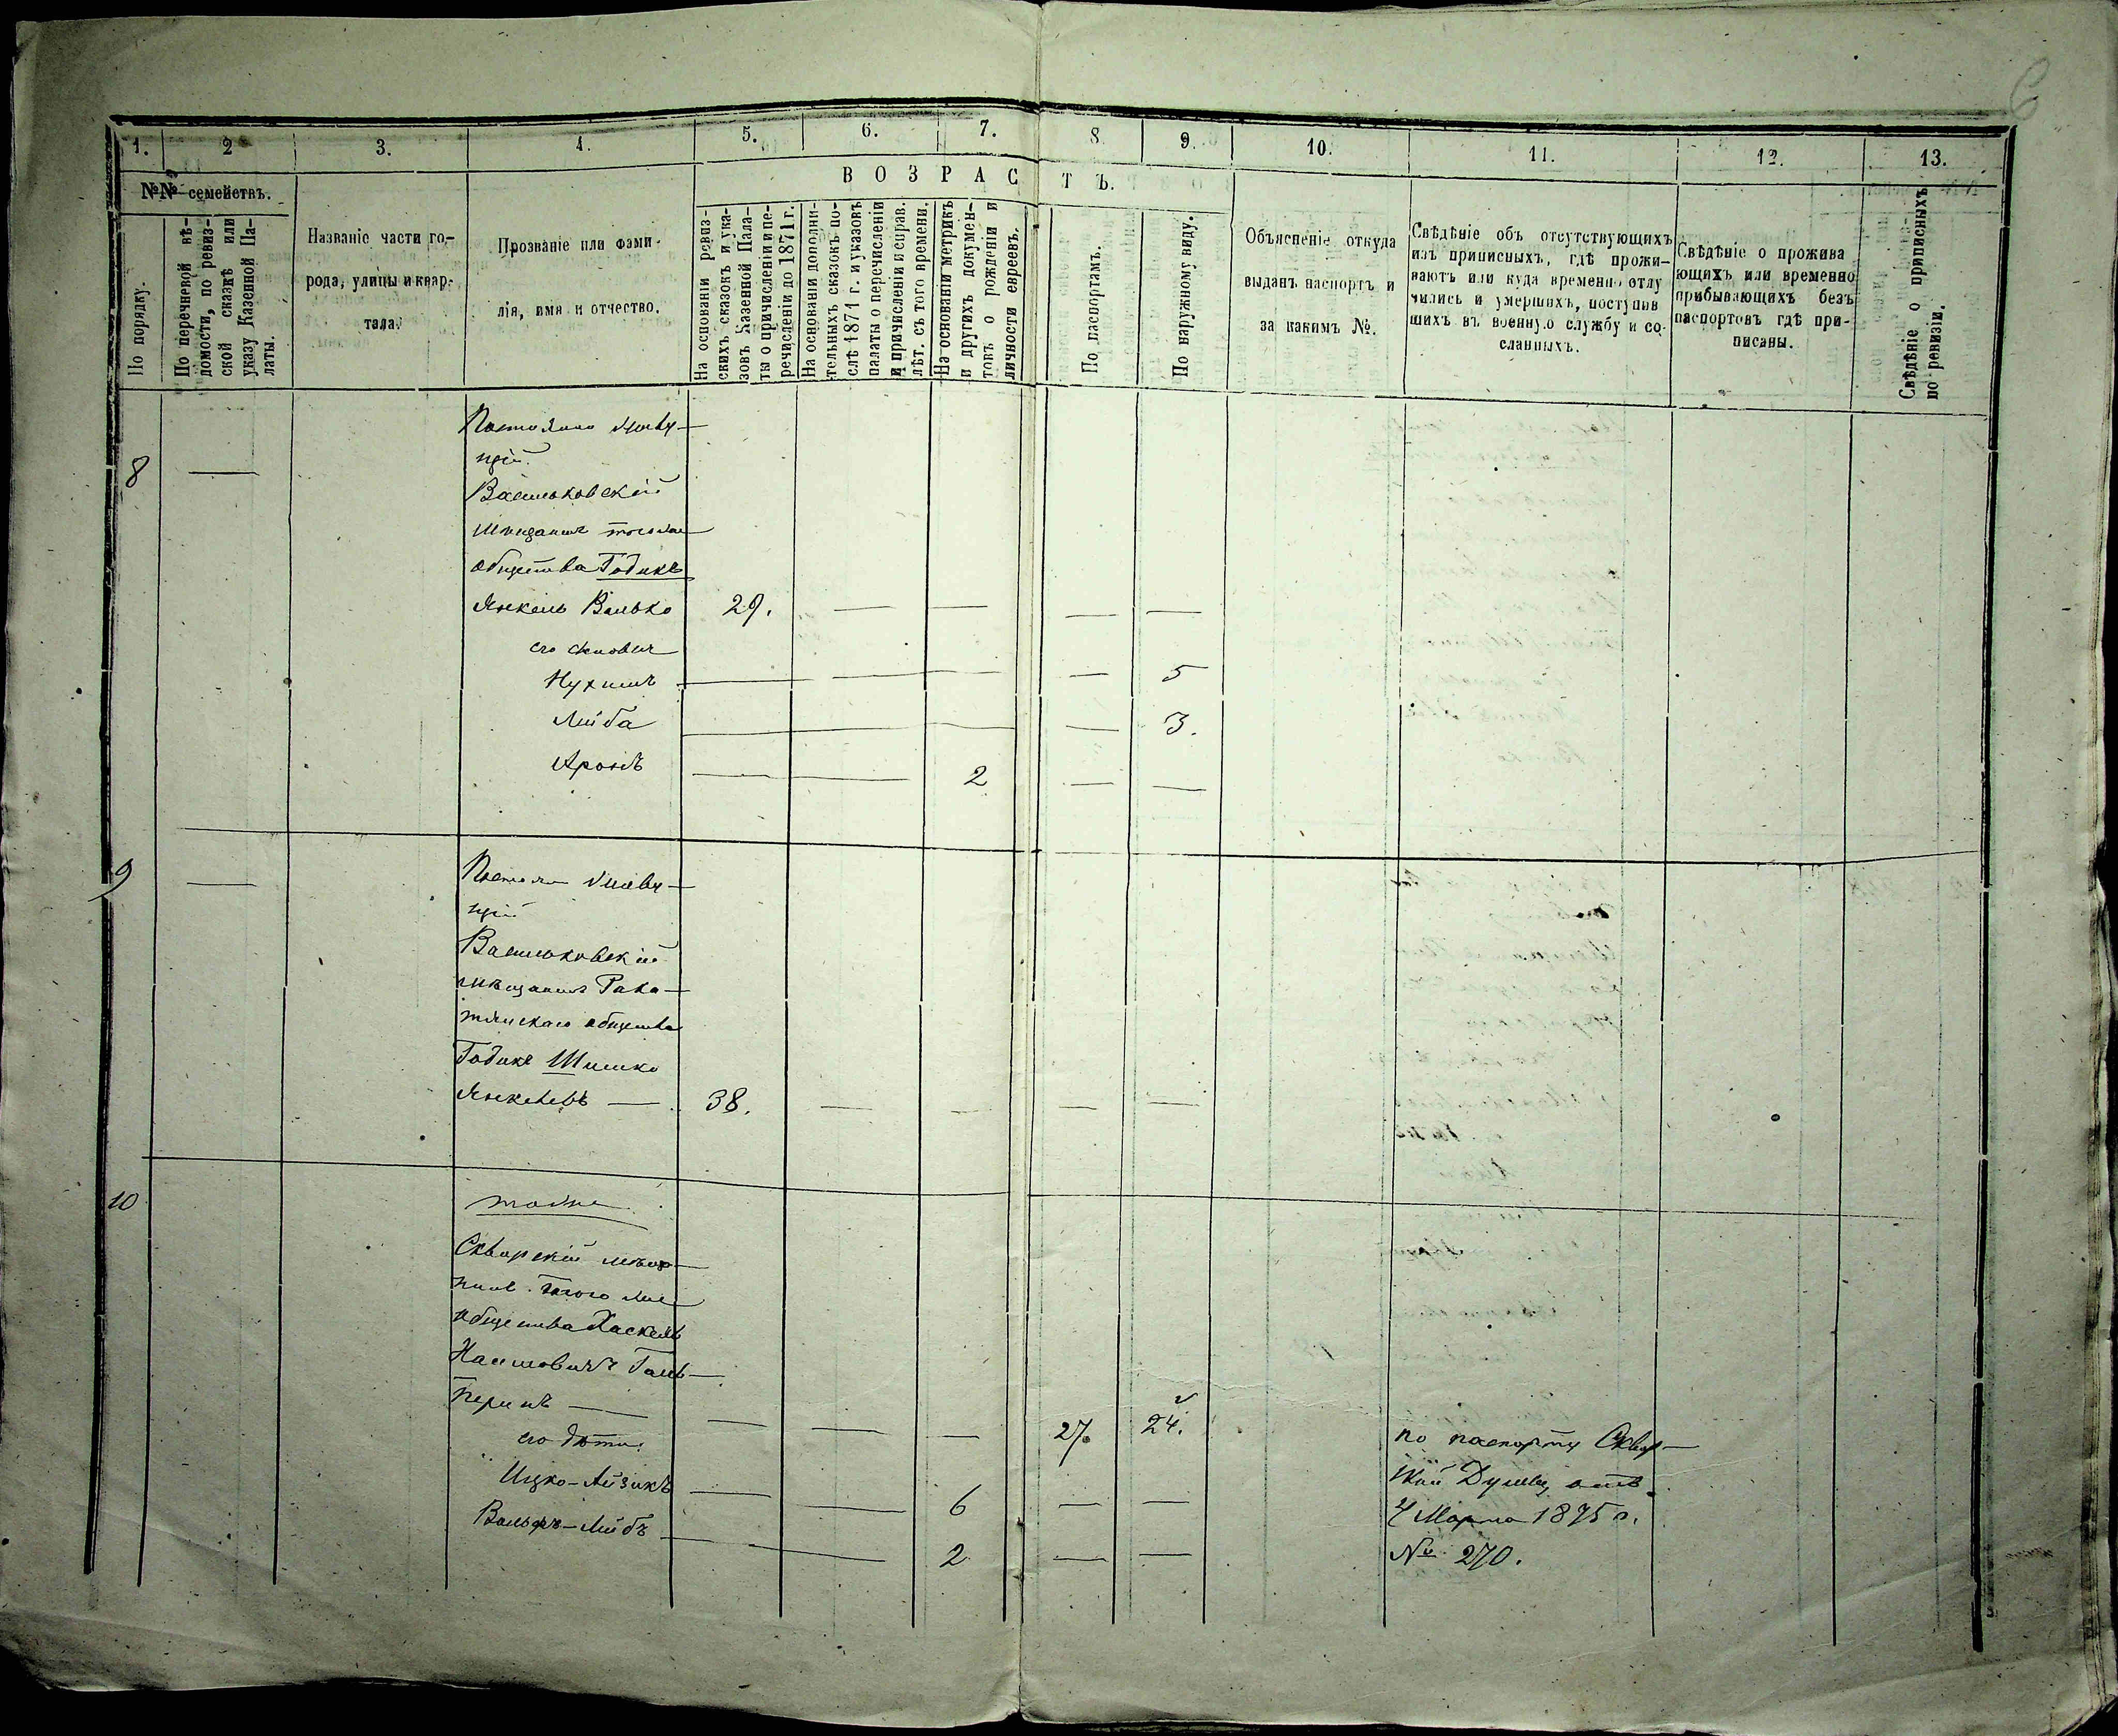 1.
2
3.
4.
5.
6.
7.
8
9.
10.
11.
12.
13.
№№ семействъ.
ВОЗРАСТЪ.
По порядку.
По перечневой вѣ-
домости, по ревиз-
ской сказкѣ или
указу Казенной Па-
латы.
Названіе части го-
рода, улицы и квар-
тала.
Прозваніе или фами-
лія, имя и отчество.
На основаніи ревиз-
скихъ сказокъ и ука-
зовъ Казенной Пала-
ты о причисленіи и пе-
речисленіи до 1871 г.
На основаніи дополни-
тельныхъ сказокъ по-
слѣ 1871 г. и указовъ
палаты о перечисленіи
и причисленіи и справ.
лѣт. съ того времени.
На основаніи метрикъ
и другихъ докумен-
товъ о рожденіи и
личности евреевъ.
По паспортамъ.
По наружному виду.
Объясненіе откуда
выданъ паспортъ и
за какимъ №.
Свѣдѣніе объ отсутствующихъ
изъ приписныхъ, гдѣ прожи-
ваютъ или куда временно отлу
чились и умершихъ, поступив
шихъ въ военную службу и со-
сланныхъ.
Свѣдѣніе о прожива
ющихъ или временно
прибывающихъ безъ
паспортовъ гдѣ при-
писаны.
Свѣдѣніе о приписныхъ
по ревизіи.
8
Постоянно живу-
щій
Васильковскій
мѣщанинъ того же
общества Годикъ
Янкель Волько 29.
его сыновья
Нухимъ 5
Лейба 3.
Аронъ 2
9
Постоян живу-
щій
Васильковскій
мѣщанинъ Рако-
тянскаго общества
Годикъ Шимко
Янкелевъ — 38.
10
тоже
Сквирскій мѣща-
нинъ того же
общества Хаскель
Галь-
перинъ — 27. 24.
его дѣти:
Ицко-Айзикъ 6
Вольфъ-Лейбъ 2
по паспорту Сквир-
ской Думы отъ
4 Марта 1875 г.
№ 270.